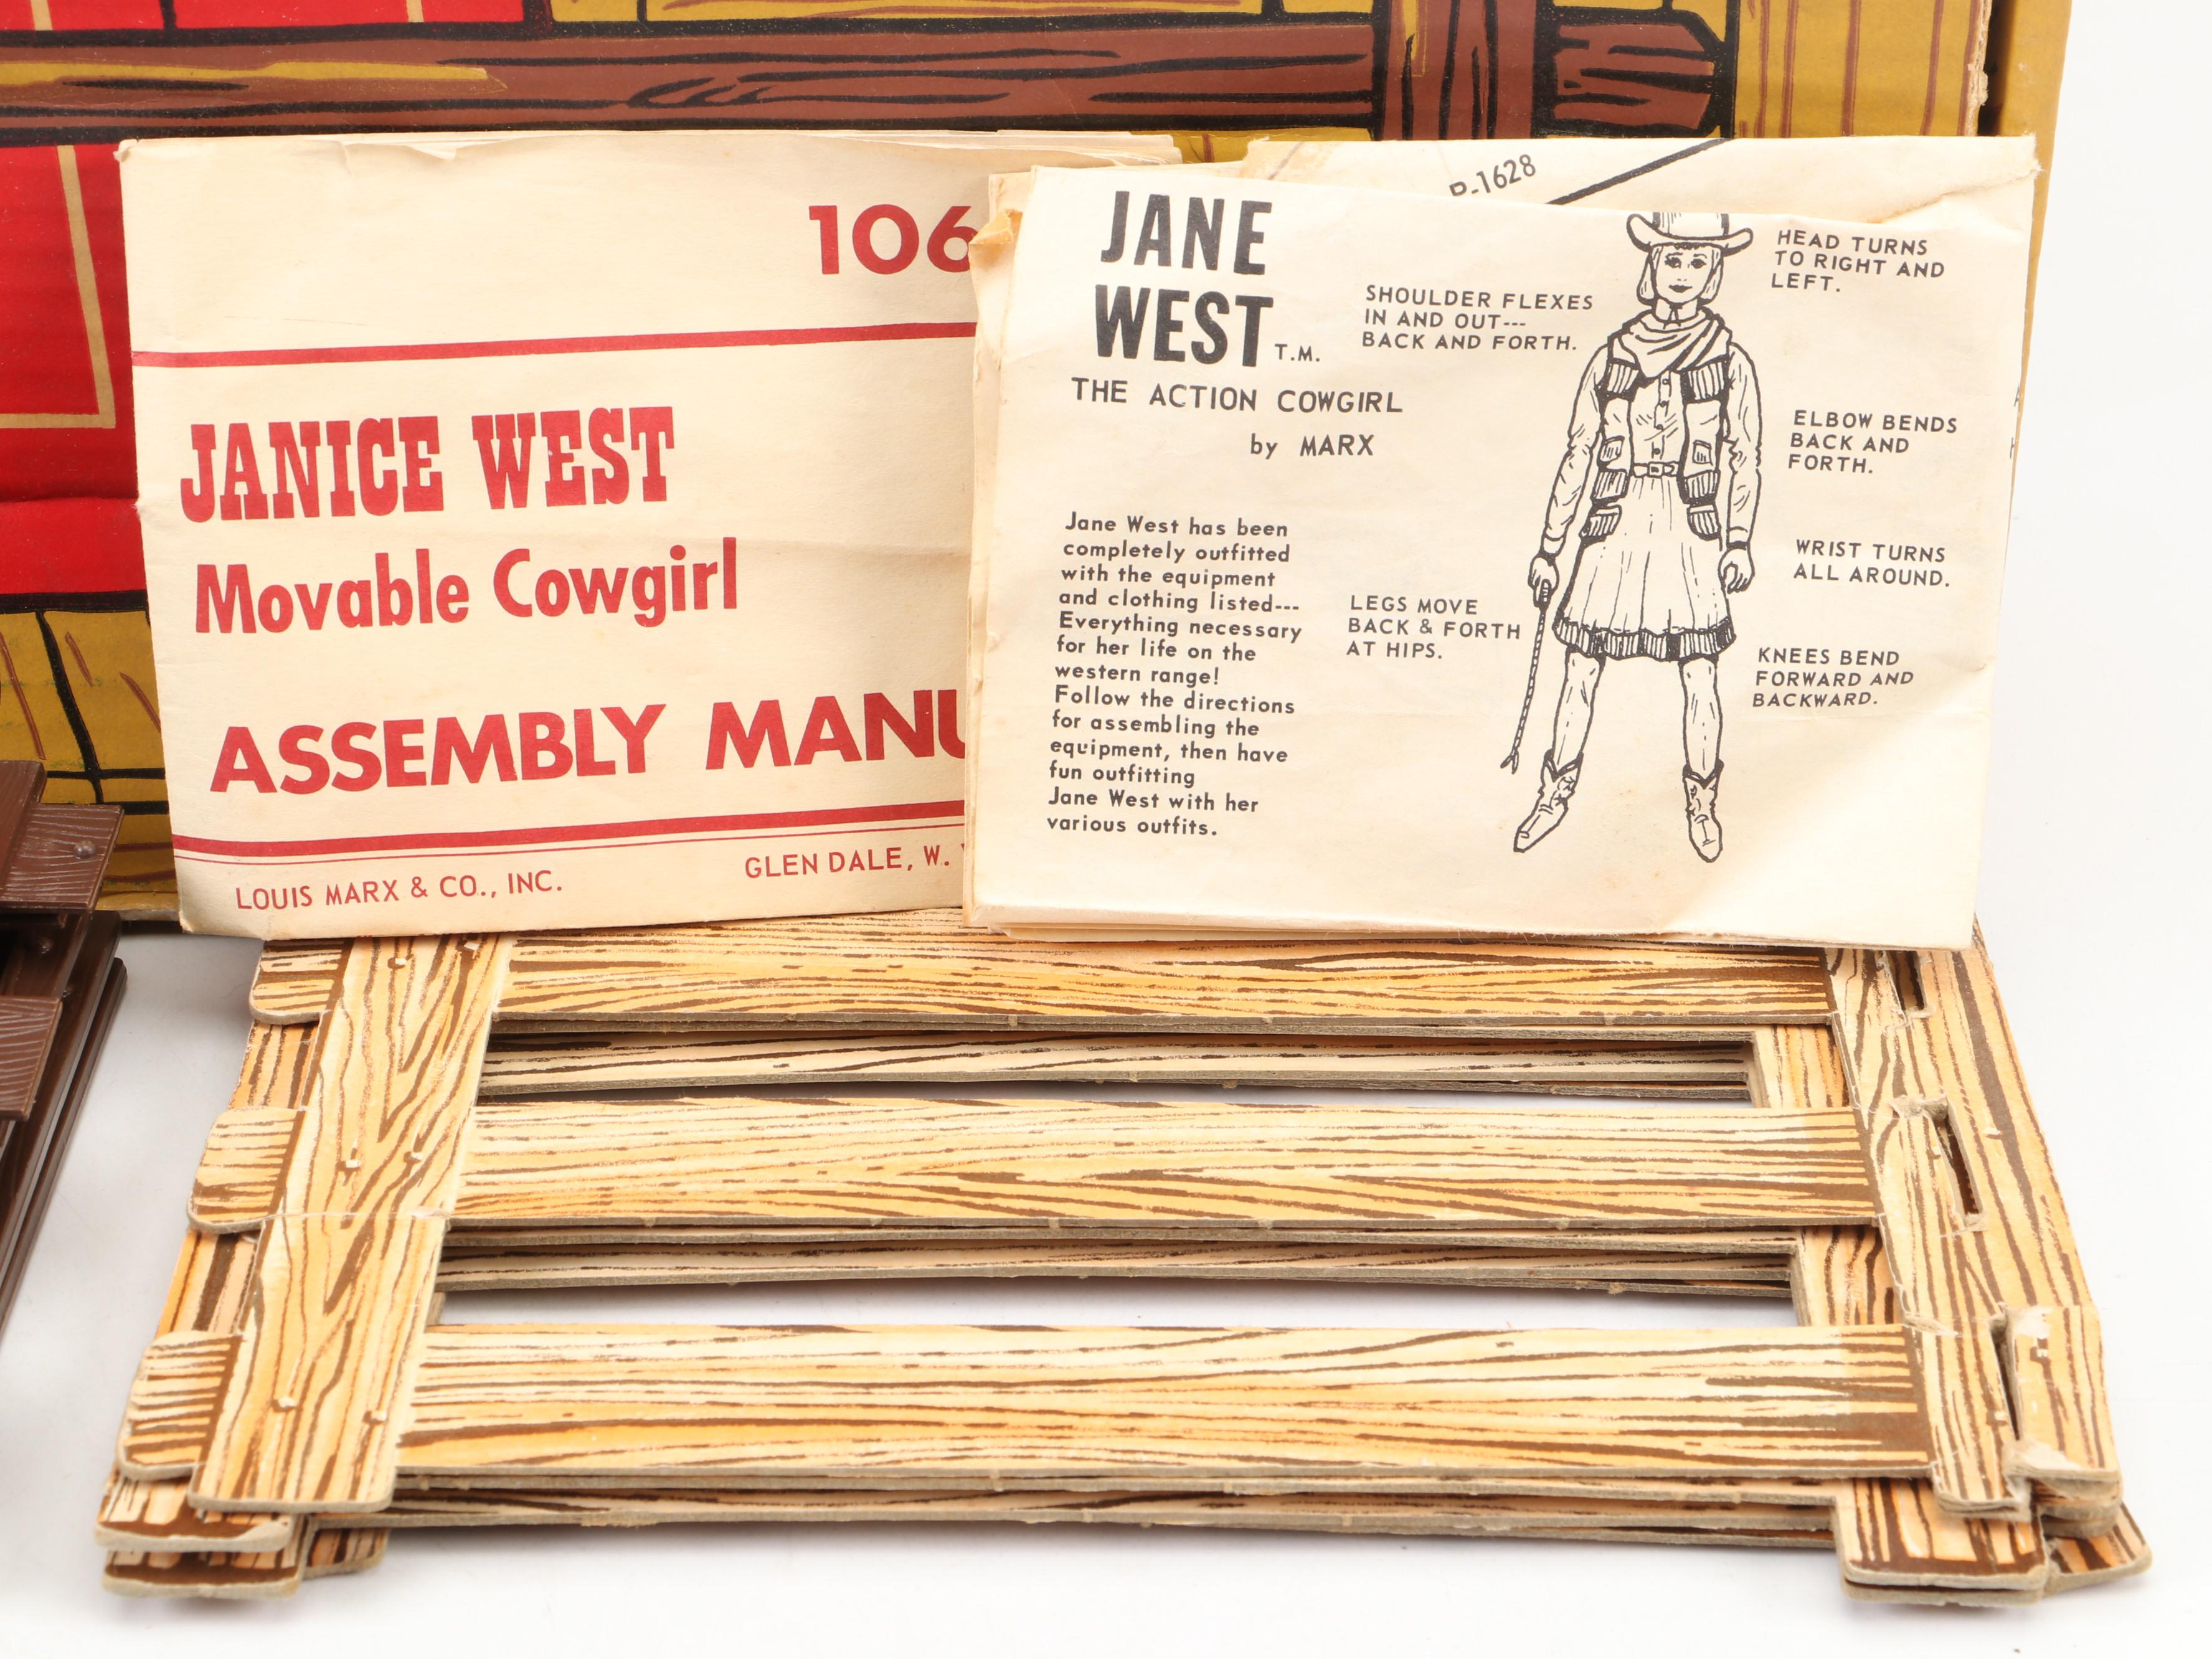 106
JANICE WEST
Movable Cowgirl
ASSEMBLY MANU
LOUIS MARX & CO., INC.
GLEN DALE, W.
P-1628
JANE
WEST T.M.
THE ACTION COWGIRL
by MARX
Jane West has been
completely outfitted
with the equipment
and clothing listed---
Everything necessary
for her life on the
western range!
Follow the directions
for assembling the
equipment, then have
fun outfitting
Jane West with her
various outfits.
SHOULDER FLEXES
IN AND OUT---
BACK AND FORTH.
LEGS MOVE
BACK & FORTH
AT HIPS.
HEAD TURNS
TO RIGHT AND
LEFT.
ELBOW BENDS
BACK AND
FORTH.
WRIST TURNS
ALL AROUND.
KNEES BEND
FORWARD AND
BACKWARD.